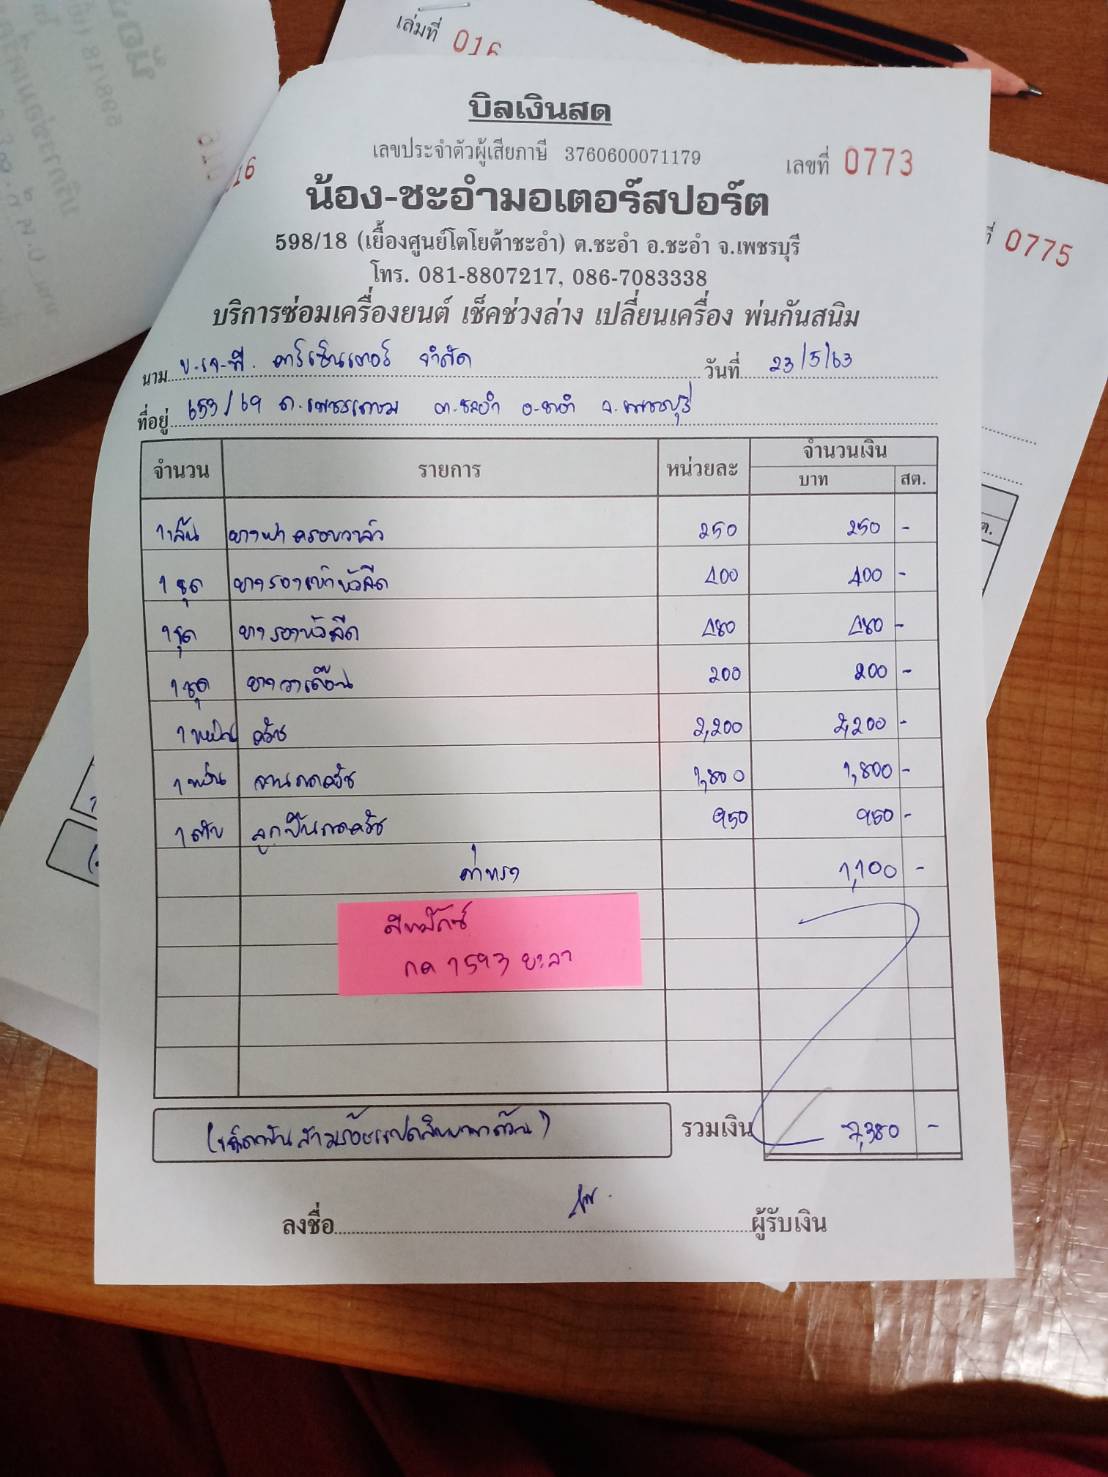 เล่มที่ 016
บิลเงินสด
เลขประจำตัวผู้เสียภาษี 3760600071179
เลขที่ 0773
น้อง-ชะอำมอเตอร์สปอร์ต
598/18 (เยื้องศูนย์โตโยต้าชะอำ) ต.ชะอำ อ.ชะอำ จ.เพชรบุรี
ที่ 0775
โทร. 081-8807217, 086-7083338
บริการซ่อมเครื่องยนต์ เช็คช่วงล่าง เปลี่ยนเครื่อง พ่นกันสนิม
นาม บ.เจ.พี. คาร์เซ็นเตอร์ จำกัด วันที่ 23/5/63
ที่อยู่ 653/69 ถ.เพชรเกษม ต.ชะอำ อ.ชะอำ จ.เพชรบุรี
จำนวน รายการ หน่วยละ จำนวนเงิน
บาท สต.
1 เส้น ยางฝาครอบวาล์ว 250 250 -
1 ชุด ยางรองเบ้าหัวฉีด 400 400 -
1 ชุด ยางรองหัวฉีด 480 480 -
1 ชุด ยาง 200 200 -
1 ครัช 2,200 2,200 -
1 จานกดครัช 1,800 1,800 -
1 ตลับ ลูกปืนกดครัช 950 950 -
ค่าแรง 1,100 -
กด 1593 ยะลา
(เจ็ดพันสามร้อยแปดสิบบาทถ้วน) รวมเงิน 7,380 -
ลงชื่อ ผู้รับเงิน